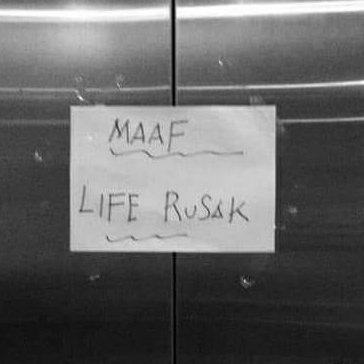 MAAF
LIFE RUSAK